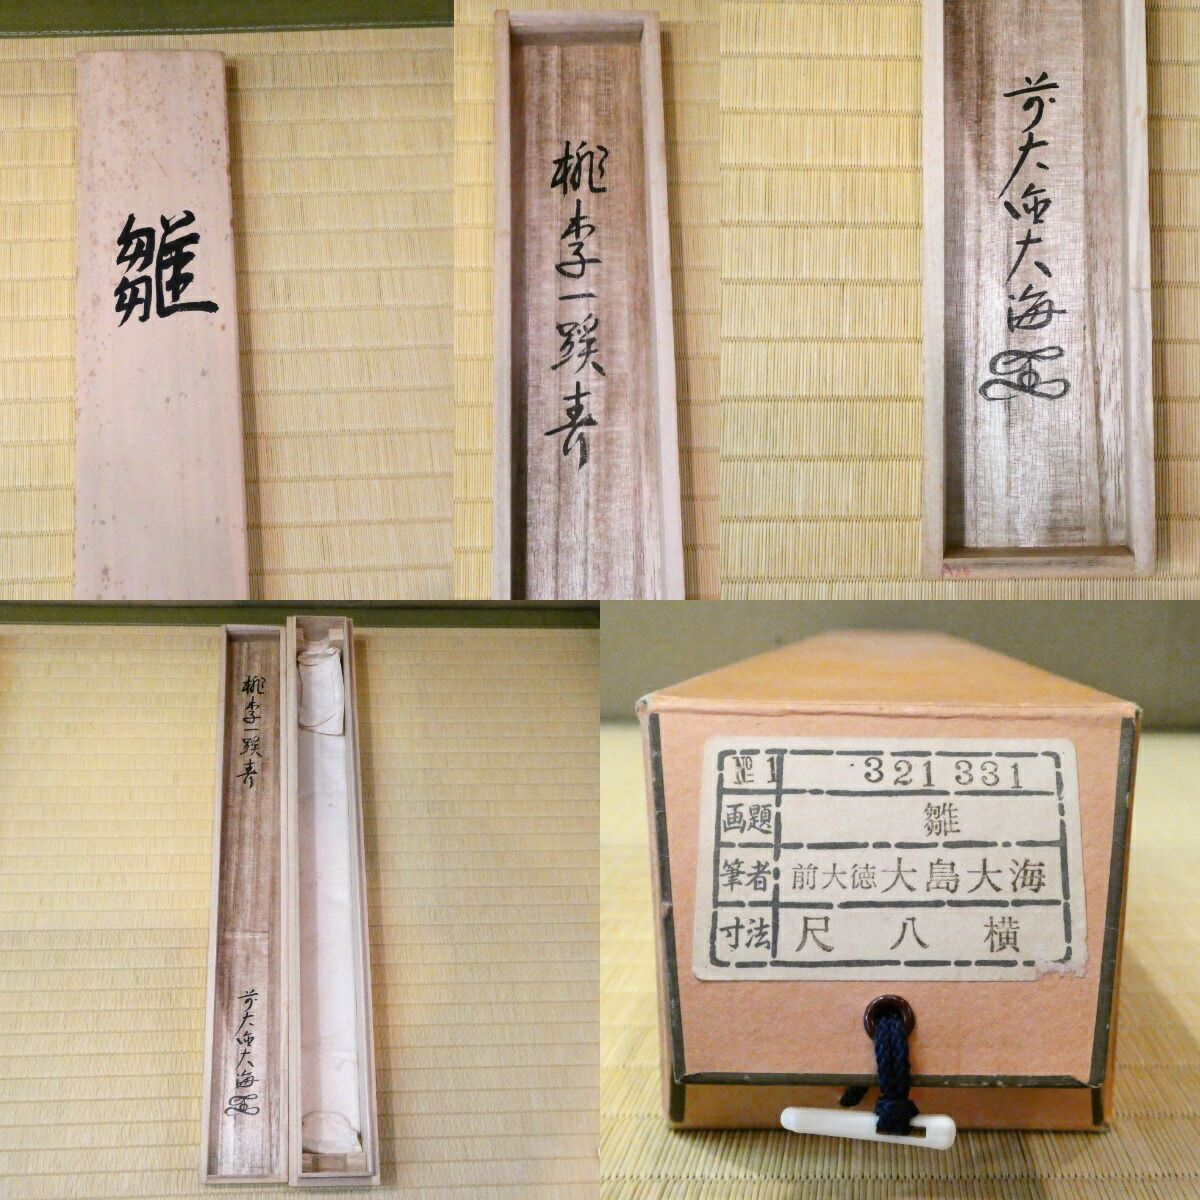 雛
桃李一蹊春
前大徳大海
桃李一蹊春
前大徳大海
№1 321331
画題 雛
筆者 前大徳大島大海
寸法 尺八横